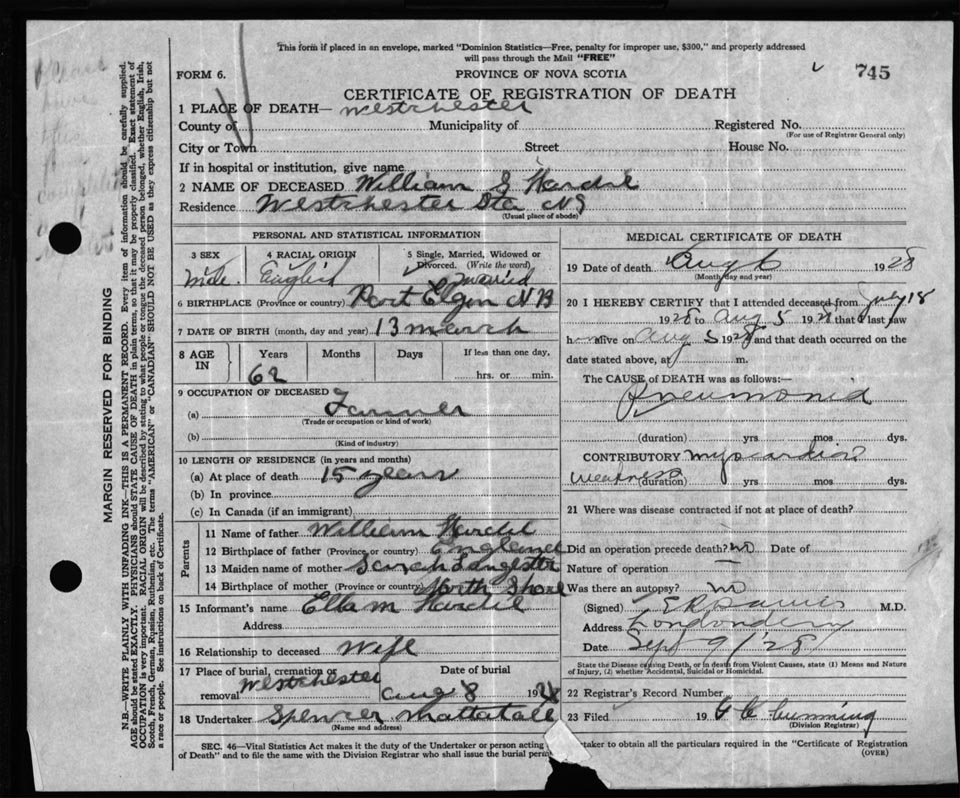 This form if placed in an envelope, marked "Dominion Statistics—Free, penalty for improper use, $300," and properly addressed
will pass through the Mail "FREE"
FORM 6.
PROVINCE OF NOVA SCOTIA
745
CERTIFICATE OF REGISTRATION OF DEATH
1 PLACE OF DEATH— Westchester
County of
Municipality of
Registered No.
(For use of Registrar General only)
City or Town
Street
House No.
If in hospital or institution, give name
2 NAME OF DECEASED William
Residence Westchester Sta NS
(Usual place of abode)
PERSONAL AND STATISTICAL INFORMATION
3 SEX
Male.
4 RACIAL ORIGIN
English
5 Single, Married, Widowed or
Divorced. (Write the word)
Married
6 BIRTHPLACE (Province or country) Port Elgin NB
7 DATE OF BIRTH (month, day and year) 13 March
8 AGE
IN
Years
62
Months
Days
If less than one day,
hrs. or min.
9 OCCUPATION OF DECEASED
(a) Farmer
(Trade or occupation or kind of work)
(b)
(Kind of industry)
10 LENGTH OF RESIDENCE (in years and months)
(a) At place of death 15 years
(b) In province
(c) In Canada (if an immigrant)
Parents
11 Name of father William
12 Birthplace of father (Province or country) England
13 Maiden name of mother Sarah
14 Birthplace of mother (Province or country) North Shore
15 Informant's name Ella M
Address
16 Relationship to deceased Wife
17 Place of burial, cremation or
removal Westchester
Date of burial
Aug 8 1928
18 Undertaker Spencer Mattatall
(Name and address)
MEDICAL CERTIFICATE OF DEATH
19 Date of death Aug 6 1928
(Month, day and year)
20 I HEREBY CERTIFY that I attended deceased from July 18
1928 to Aug 5 1928 that I last saw
him alive on Aug 5 1928 and that death occurred on the
date stated above, at m.
The CAUSE of DEATH was as follows:—
Pneumonia
(duration) yrs. mos. dys.
CONTRIBUTORY myocardial
weakness (duration) yrs. mos. dys.
21 Where was disease contracted if not at place of death?
Did an operation precede death? no Date of
Nature of operation —
Was there an autopsy? no
(Signed) M.D.
Address Londonderry
Date Sept 9/28
State the Disease causing Death, or in death from Violent Causes, state (1) Means and Nature
of Injury, (2) whether Accidental, Suicidal or Homicidal.
22 Registrar's Record Number
23 Filed 19 Cumming
(Division Registrar)
SEC. 46—Vital Statistics Act makes it the duty of the Undertaker or person acting
taker to obtain all the particulars required in the "Certificate of Registration
of Death" and to file the same with the Division Registrar who shall issue the burial
(OVER)
MARGIN RESERVED FOR BINDING
N.B.—WRITE PLAINLY WITH UNFADING INK—THIS IS A PERMANENT RECORD. Every item of information should be carefully supplied.
AGE should be stated EXACTLY. PHYSICIANS should STATE CAUSE OF DEATH in plain terms, so that it may be properly classified. Exact statement of
OCCUPATION is very important. RACIAL ORIGIN will be described by stating to what people or tongue the deceased person belonged, whether English, Irish,
Scotch, French, German, Russian, Ruthenian, etc. The terms "AMERICAN" or "CANADIAN" SHOULD NOT BE USED as they express citizenship but not
a race or people. See instructions on back of Certificate.